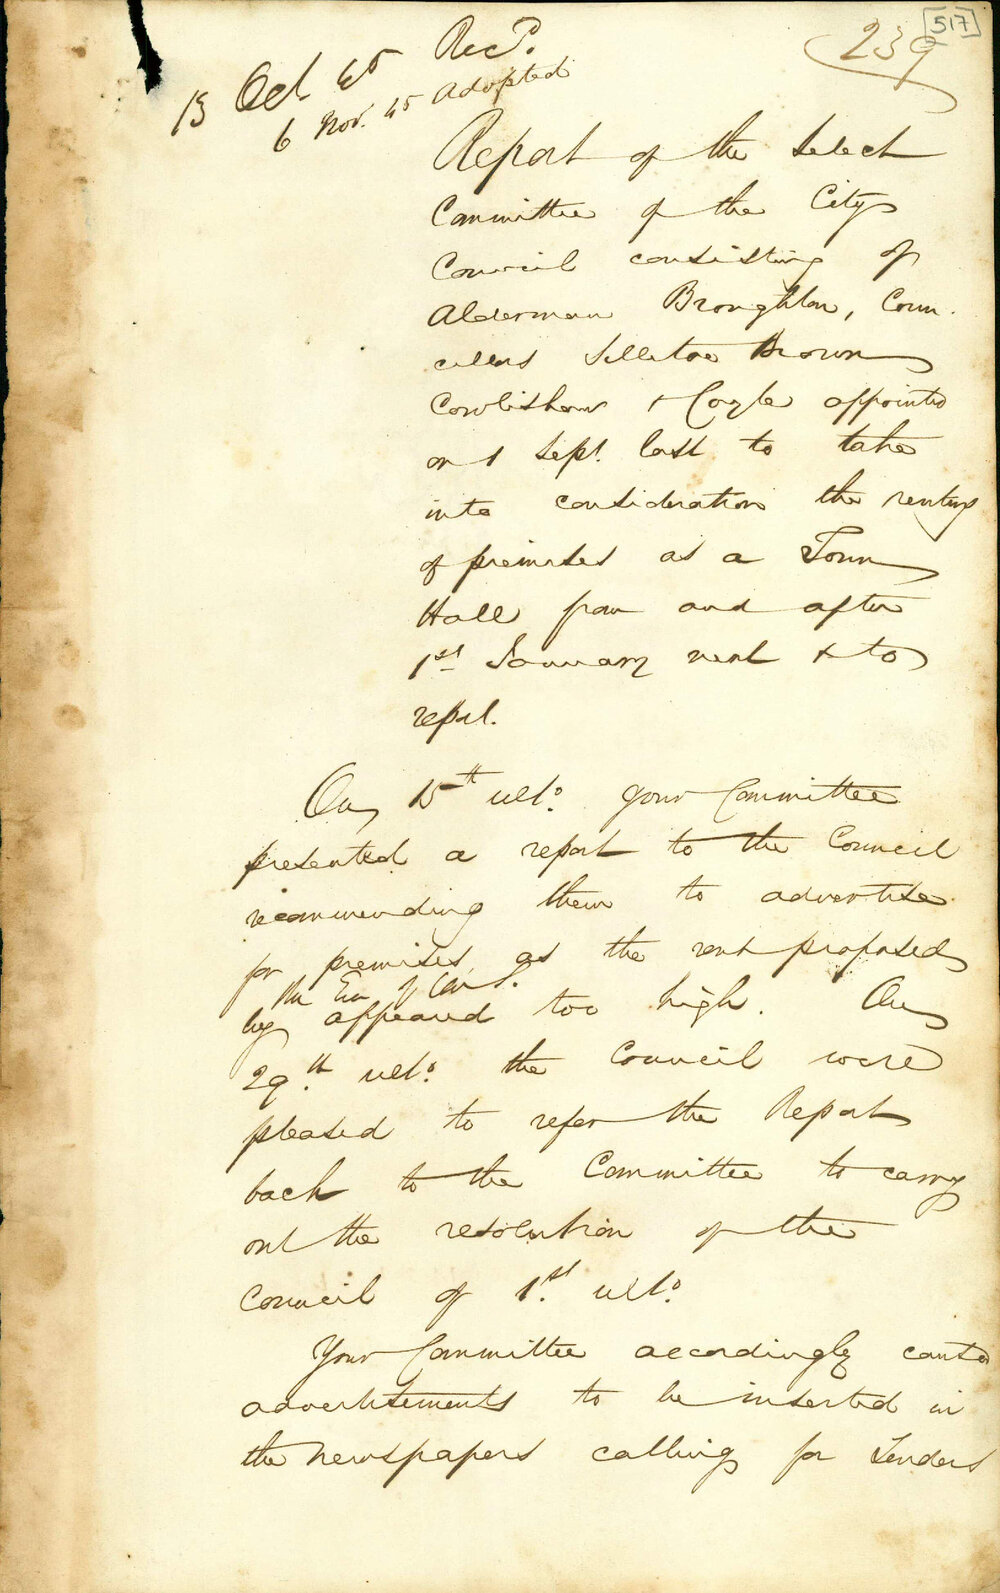 517
239
13 Oct 45 Recd.
6 Nov. 45 Adopted
Report of the Select
Committee of the City
Council consisting of
Alderman Broughton, Coun-
cillors Silletoe Brown
Cowlishaw & Coyle appointed
on 1 Sept. last to take
into consideration the renting
of premises as a Town
Hall from and after
1st January next & to
report.
On 15th ulto. your Committee
presented a report to the Council
recommending them to advertise
for premises, as the rent proposed
the Exr. of
by appeared too high. On
29th. ulto. the Council were
pleased to refer the Report
back to the Committee to carry
out the resolution of the
Council of 1st. ulto.
Your Committee accordingly caused
advertisements to be inserted in
the newspapers calling for Tenders